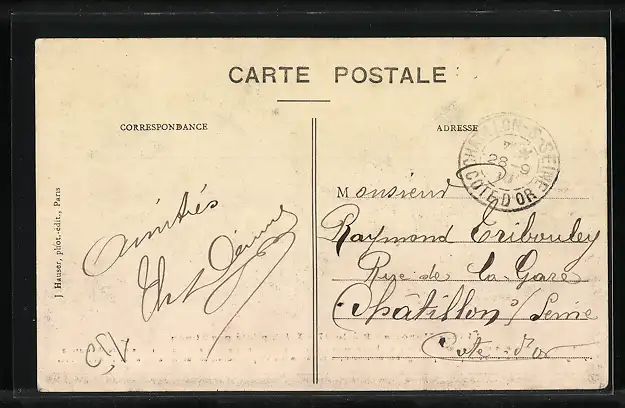 CARTE POSTALE
CORRESPONDANCE
ADRESSE
CHATILLON-S-SEINE
28-9
COTE D'OR
Monsieur
Raymond Tribouley
Rue de la Gare
Châtillon s/ Seine
Côte d'or
Amitiés
J Hauser, phot.-édit., Paris